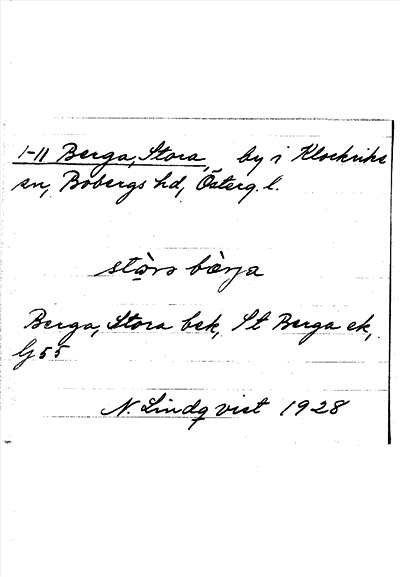 1-11 Berga, Stora, by i Klockrike
sn, Bobergs hd, Österg. l.
stòrs bèrja
Berga, Stora bek, St Berga ek,
G55
N. Lindqvist 1928